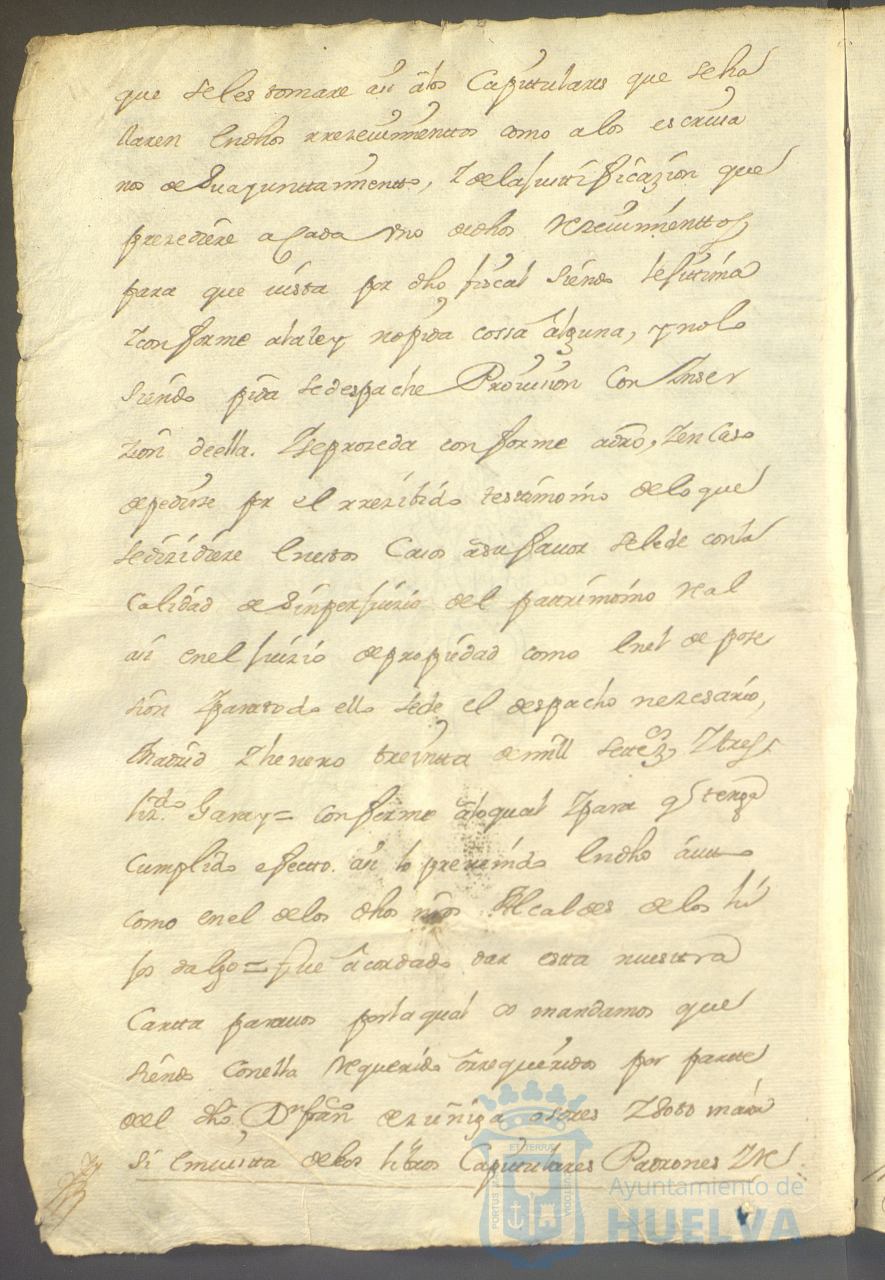 que se les tomare asi a los Capitulares que se ha
llaren en dhos rrezeuimientos como a los escriua
nos de su ayunttamiento, Y de la justificazion que
prezediere a Cada vno de dhos Rezeuimienttos
para que vista por dho fiscal siendo lejitima
Y conforme a la ley no pida cossa alguna, y no lo
siendo pida se despache Prouision Con Inser
zion de ella. Y se prozeda conforme a dro, Y en Caso
de pedirse por el rrezibido testimonio de lo que
se dizidiere en estos Casos a su fauor se le de con la
Calidad de sin perjuizio del patrimonio Real
asi en el juizio de propiedad como en el de pose
sion Y para todo ello se de el despacho nezesario,
Madrid Y henero treinta de mill settez.os Y tres
liz.do Garay = Conforme a lo qual Y para q tenga
Cumplido efecto. asi lo preuenido en dho autto
como en el de los dhos nros Alcaldes de los hi
jos dalgo = fue acordado dar esta nuestra
Cartta para uos por la qual os mandamos que
siendo Con ella Requerido o rrequeridos por partte
del dho Dn fran.co de zuñiga osores Y soto maior
si en vista de los libros Capitulares Padrones Y Re
PORTUS
ET TERRAE
CUSTODIA
Ayuntamiento de
HUELVA